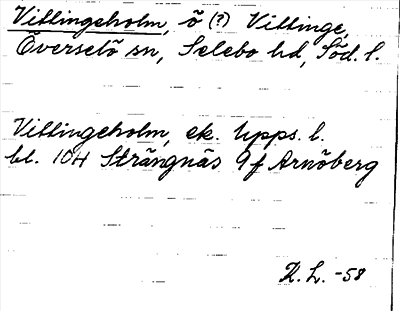 Villingeholm, ö (?) Villinge,
Överselö sn, Selebo hd, Söd. l.
Villingeholm, ek. Upps. l.
bl. 10H Strängnäs 9f Arnöberg
R. L. -58